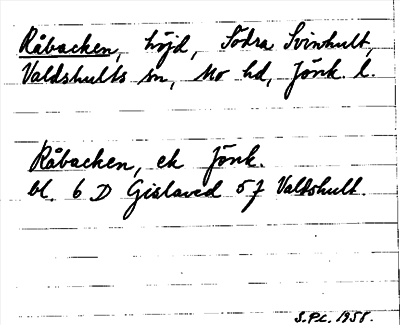 Råbacken, höjd, Södra Svinhult,
Valdshults sn, Mo hd, Jönk. l.
Råbacken, ek Jönk.
bl. 6 D Gislaved 5 f Valdshult.
S.P.C. 1958.